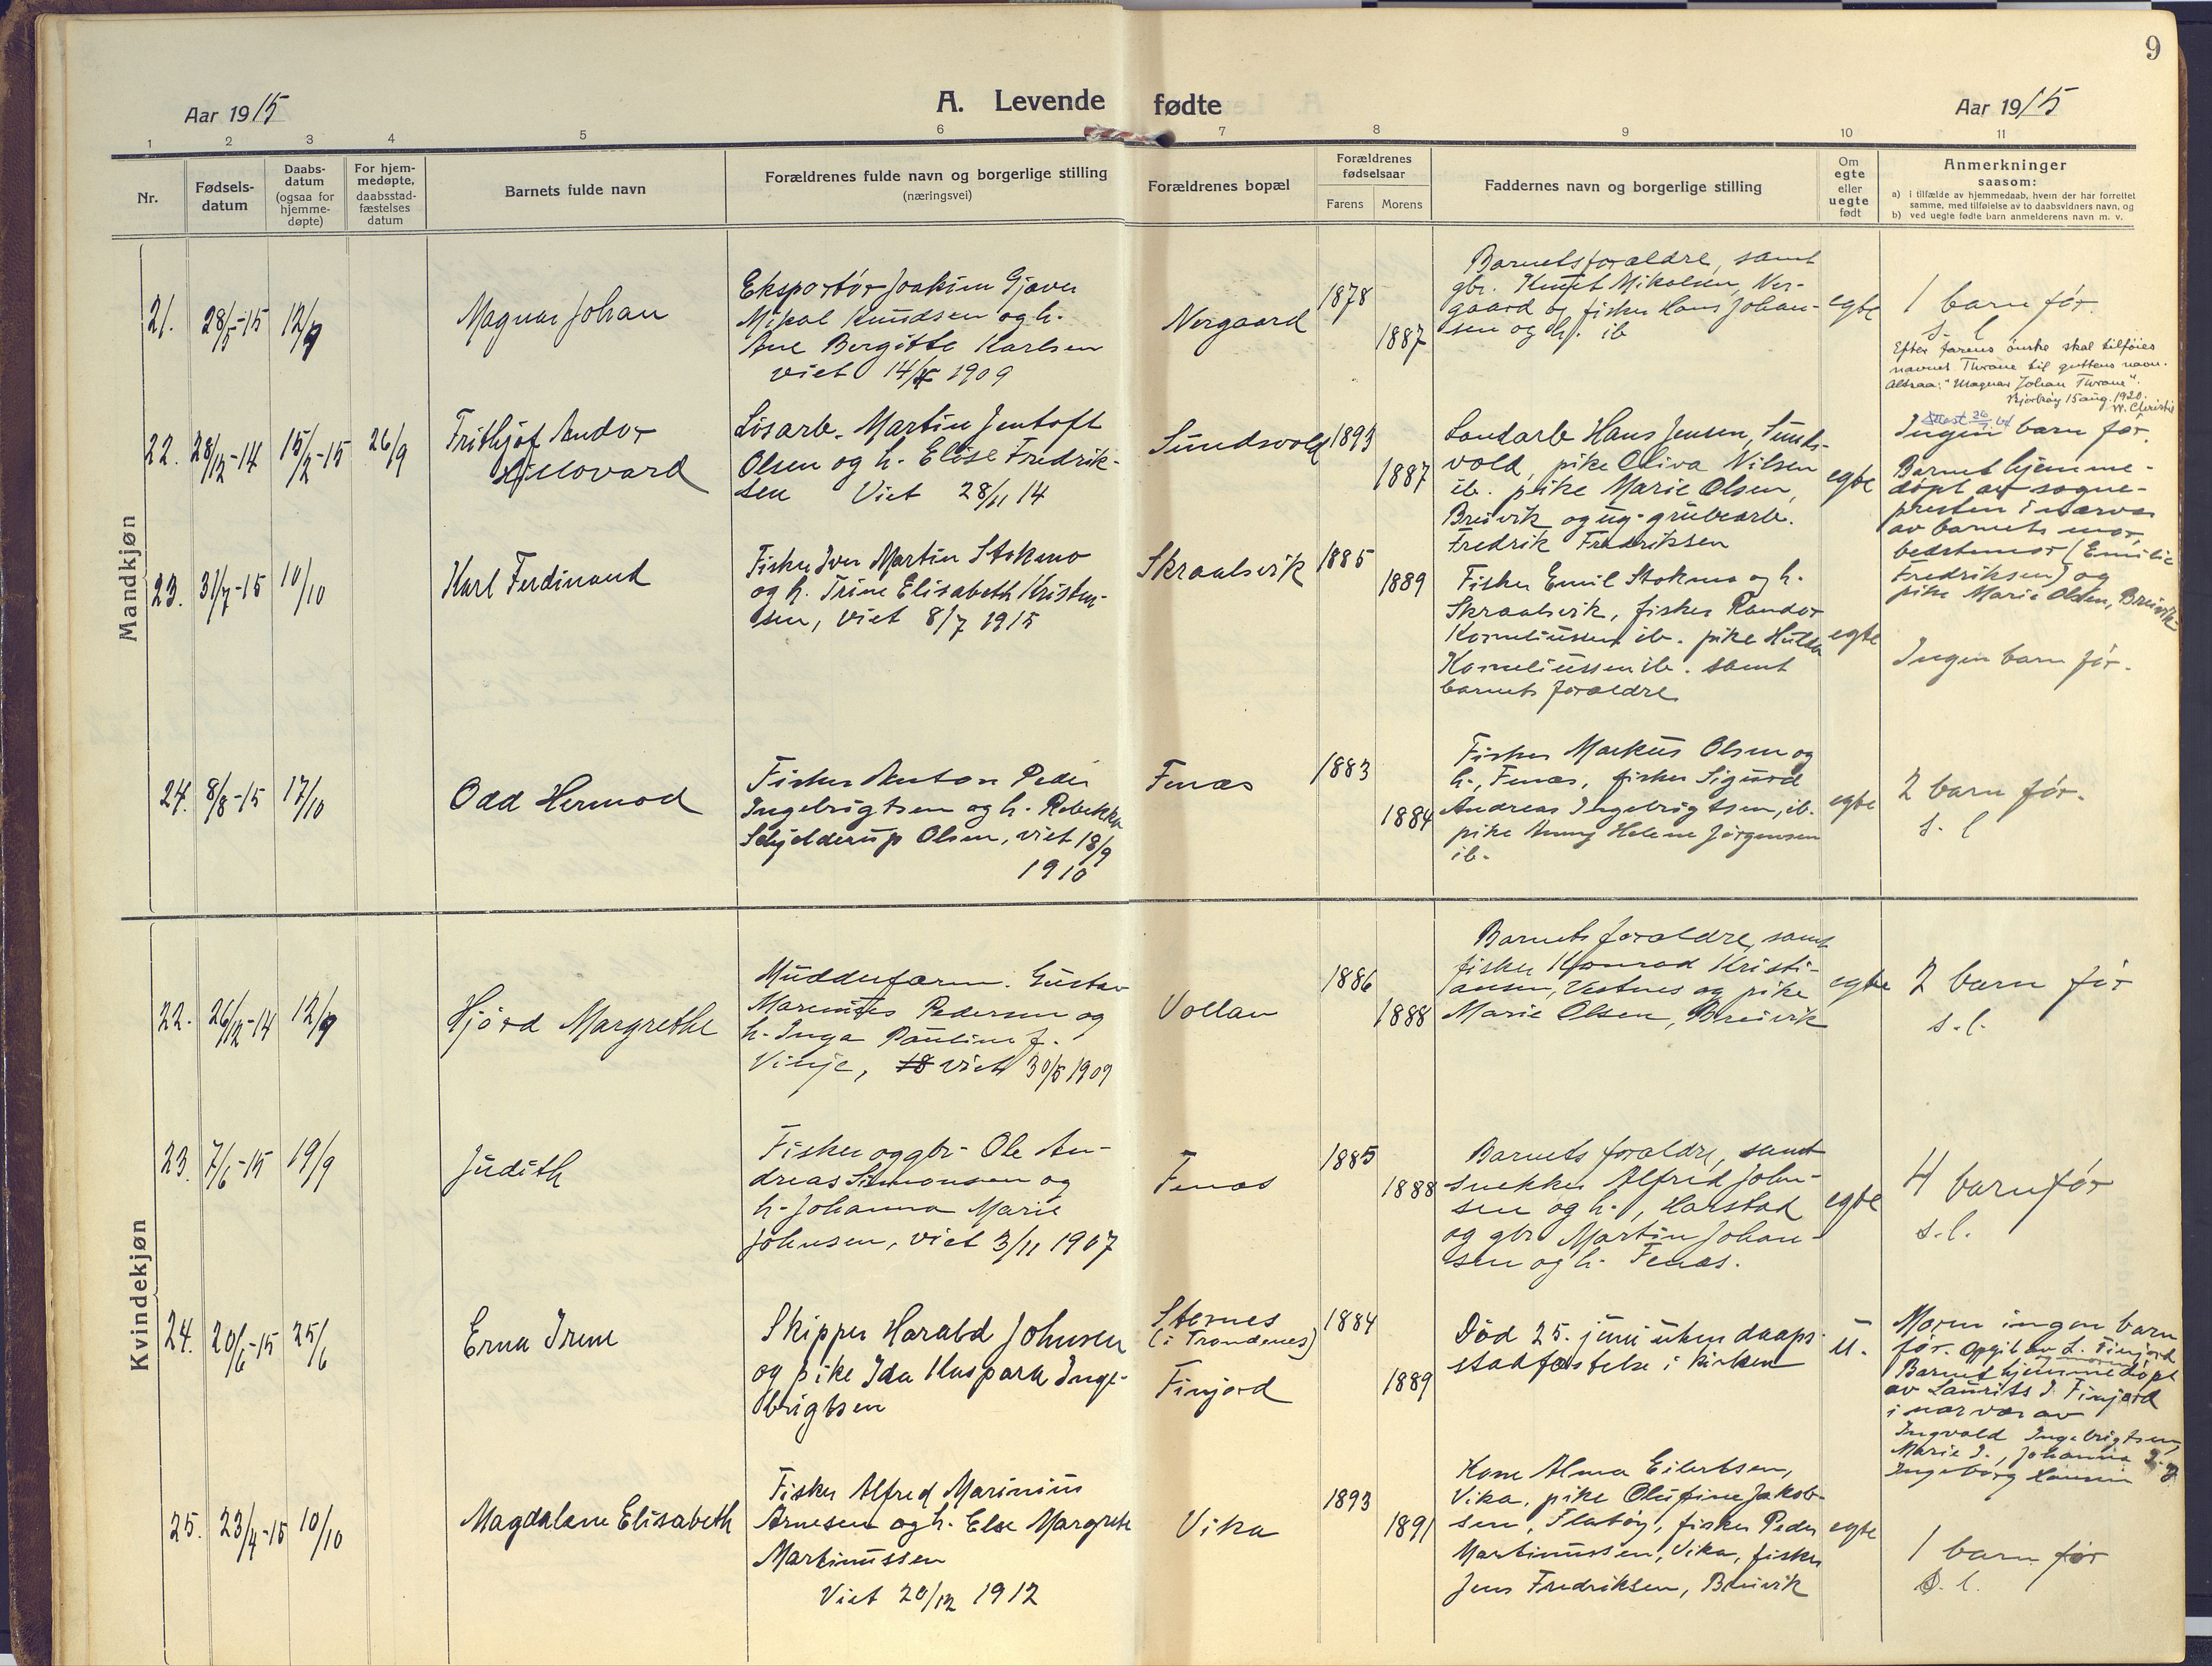 9
Aar 1915
A. Levende fødte
Aar 1915
1 2 3 4 5 6 7 8 9 10 11
Nr.
Fødsels-
datum
Daabs-
datum
(ogsaa for
hjemme-
døpte)
For hjem-
medøpte,
daabsstad-
fæstelses
datum
Barnets fulde navn
Forældrenes fulde navn og borgerlige stilling
(næringsvei)
Forældrenes bopæl
Forældrenes
fødselsaar
Farens Morens
Faddernes navn og borgerlige stilling
Om
egte
eller
uegte
født
Anmerkninger
saasom:
a) i tilfælde av hjemmedaab, hvem der har forrettet
samme, med tilføielse av to daabsvidners navn, og
b) ved uegte fødte barn anmelderens navn m. v.
Mandkjøn
21. 28/5-15 12/9
Magnar Johan
Eksportør Joakim Gjæver
Mikal Knudsen og h.
Ane Bergitte Karlsen
viet 14/ 1909
Nergaard
1878
1887
Barnets forældre, samt
gbr. Knut Mikalsen, Ner-
gaard og fisker Hans Johan-
sen og h. ib
egte
1 barn før.
s. l
Efter farens ønske skal tilføies
navnet Thrane til guttens navn.
Altsaa: "Magnar Johan Thrane".
15 aug. 1920.
W. Christie
22. 28/12-14 15/2-15 26/9
Frithjof Andor
Løsarb. Martin Jentoft
Olsen og h. Elise Fredrik-
sen Viet 28/11 14
Sundsvold
1893
1887
Landarb Hans Jensen, Sunds-
vold, pike Oliva Nilsen
ib. pike Marie Olsen,
Breivik og ug. grubearb.
Fredrik Fredriksen
egte
Ingen barn før.
Barnet hjemme-
døpt av sogne-
presten i nærvær
av barnets mor,
bedstemor (Emilie
Fredriksen) og
pike Marie Olsen, Breivik
23. 31/7-15 10/10
Karl Ferdinand
Fisker Iver Martin Stokmo
og h. Trine Elisabeth Kristen-
sen, viet 8/7 1915
Skraalsvik
1885
1889
Fisker Emil Stokmo og h.
Skraalsvik, fisker Randor
Korneliussen ib. pike Hulda
Korneliussen ib. samt
barnets forældre
egte
Ingen barn før.
24. 8/8-15 17/10
Odd Hermod
Fisker Anton Peder
Ingebrigtsen og h. Rebekka
Schjelderup Olsen, viet 18/9
1910
Fenæs
1883
1884
Fisker Markus Olsen og
h., Fenæs, fisker Sigurd
Andreas Ingebrigtsen, ib.
pike Anny Helene Jørgensen
ib.
egte
2 barn før.
s. l
Kvindekjøn
22. 26/12-14 12/9
Hjørd Margrethe
Mudderform. Gustav
Marenius Pedersen og
h. Inga Pauline f.
Vinje, 18 viet 30/5 1909
Vollan
1886
1888
Barnets forældre, samt
fisker Konrad Kristi-
ansen, Vestnes og pike
Marie Olsen, Breivik
egte
2 barn før
s. l.
23. 7/6-15 19/9
Judith
Fisker og gbr. Ole An-
dreas Simonsen og
h. Johanna Marie
Johnsen, viet 3/11 1907
Fenæs
1885
1888
Barnets forældre, samt
snekker Alfred John-
sen og h., Harstad
og gbr Martin Johan-
sen og h. Fenæs.
egte
4 barn før
s. l.
24. 20/6-15 25/6
Erna Irene
Skipper Harald Johnsen
og pike Ida Kaspara Inge-
brigtsen
Stornes
(i Trondenes)
Finjord
1884
1889
Død 25. juni uten daaps-
stadfæstelse i kirken
u.
Moren ingen barn
før. Opgit av L. Finjord
og moren.
Barnet hjemmedøpt
av Laurits J. Finjord
i nærvær av
Ingvald Ingebrigtsen,
Marie I., Johanna I. og
Ingeborg Hansen
25. 23/4-15 10/10
Magdalene Elisabeth
Fisker Alfred Marinius
Arnesen og h. Else Margrete
Martinussen
Viet 20/12 1912
Vika
1893
1891
Kone Alma Eilertsen,
Vika, pike Olufine Jakob-
sen, Flatøy, fisker Peder
Martinussen, Vika, fisker
Jens Fredriksen, Breivik
egte
1 barn før
s. l.